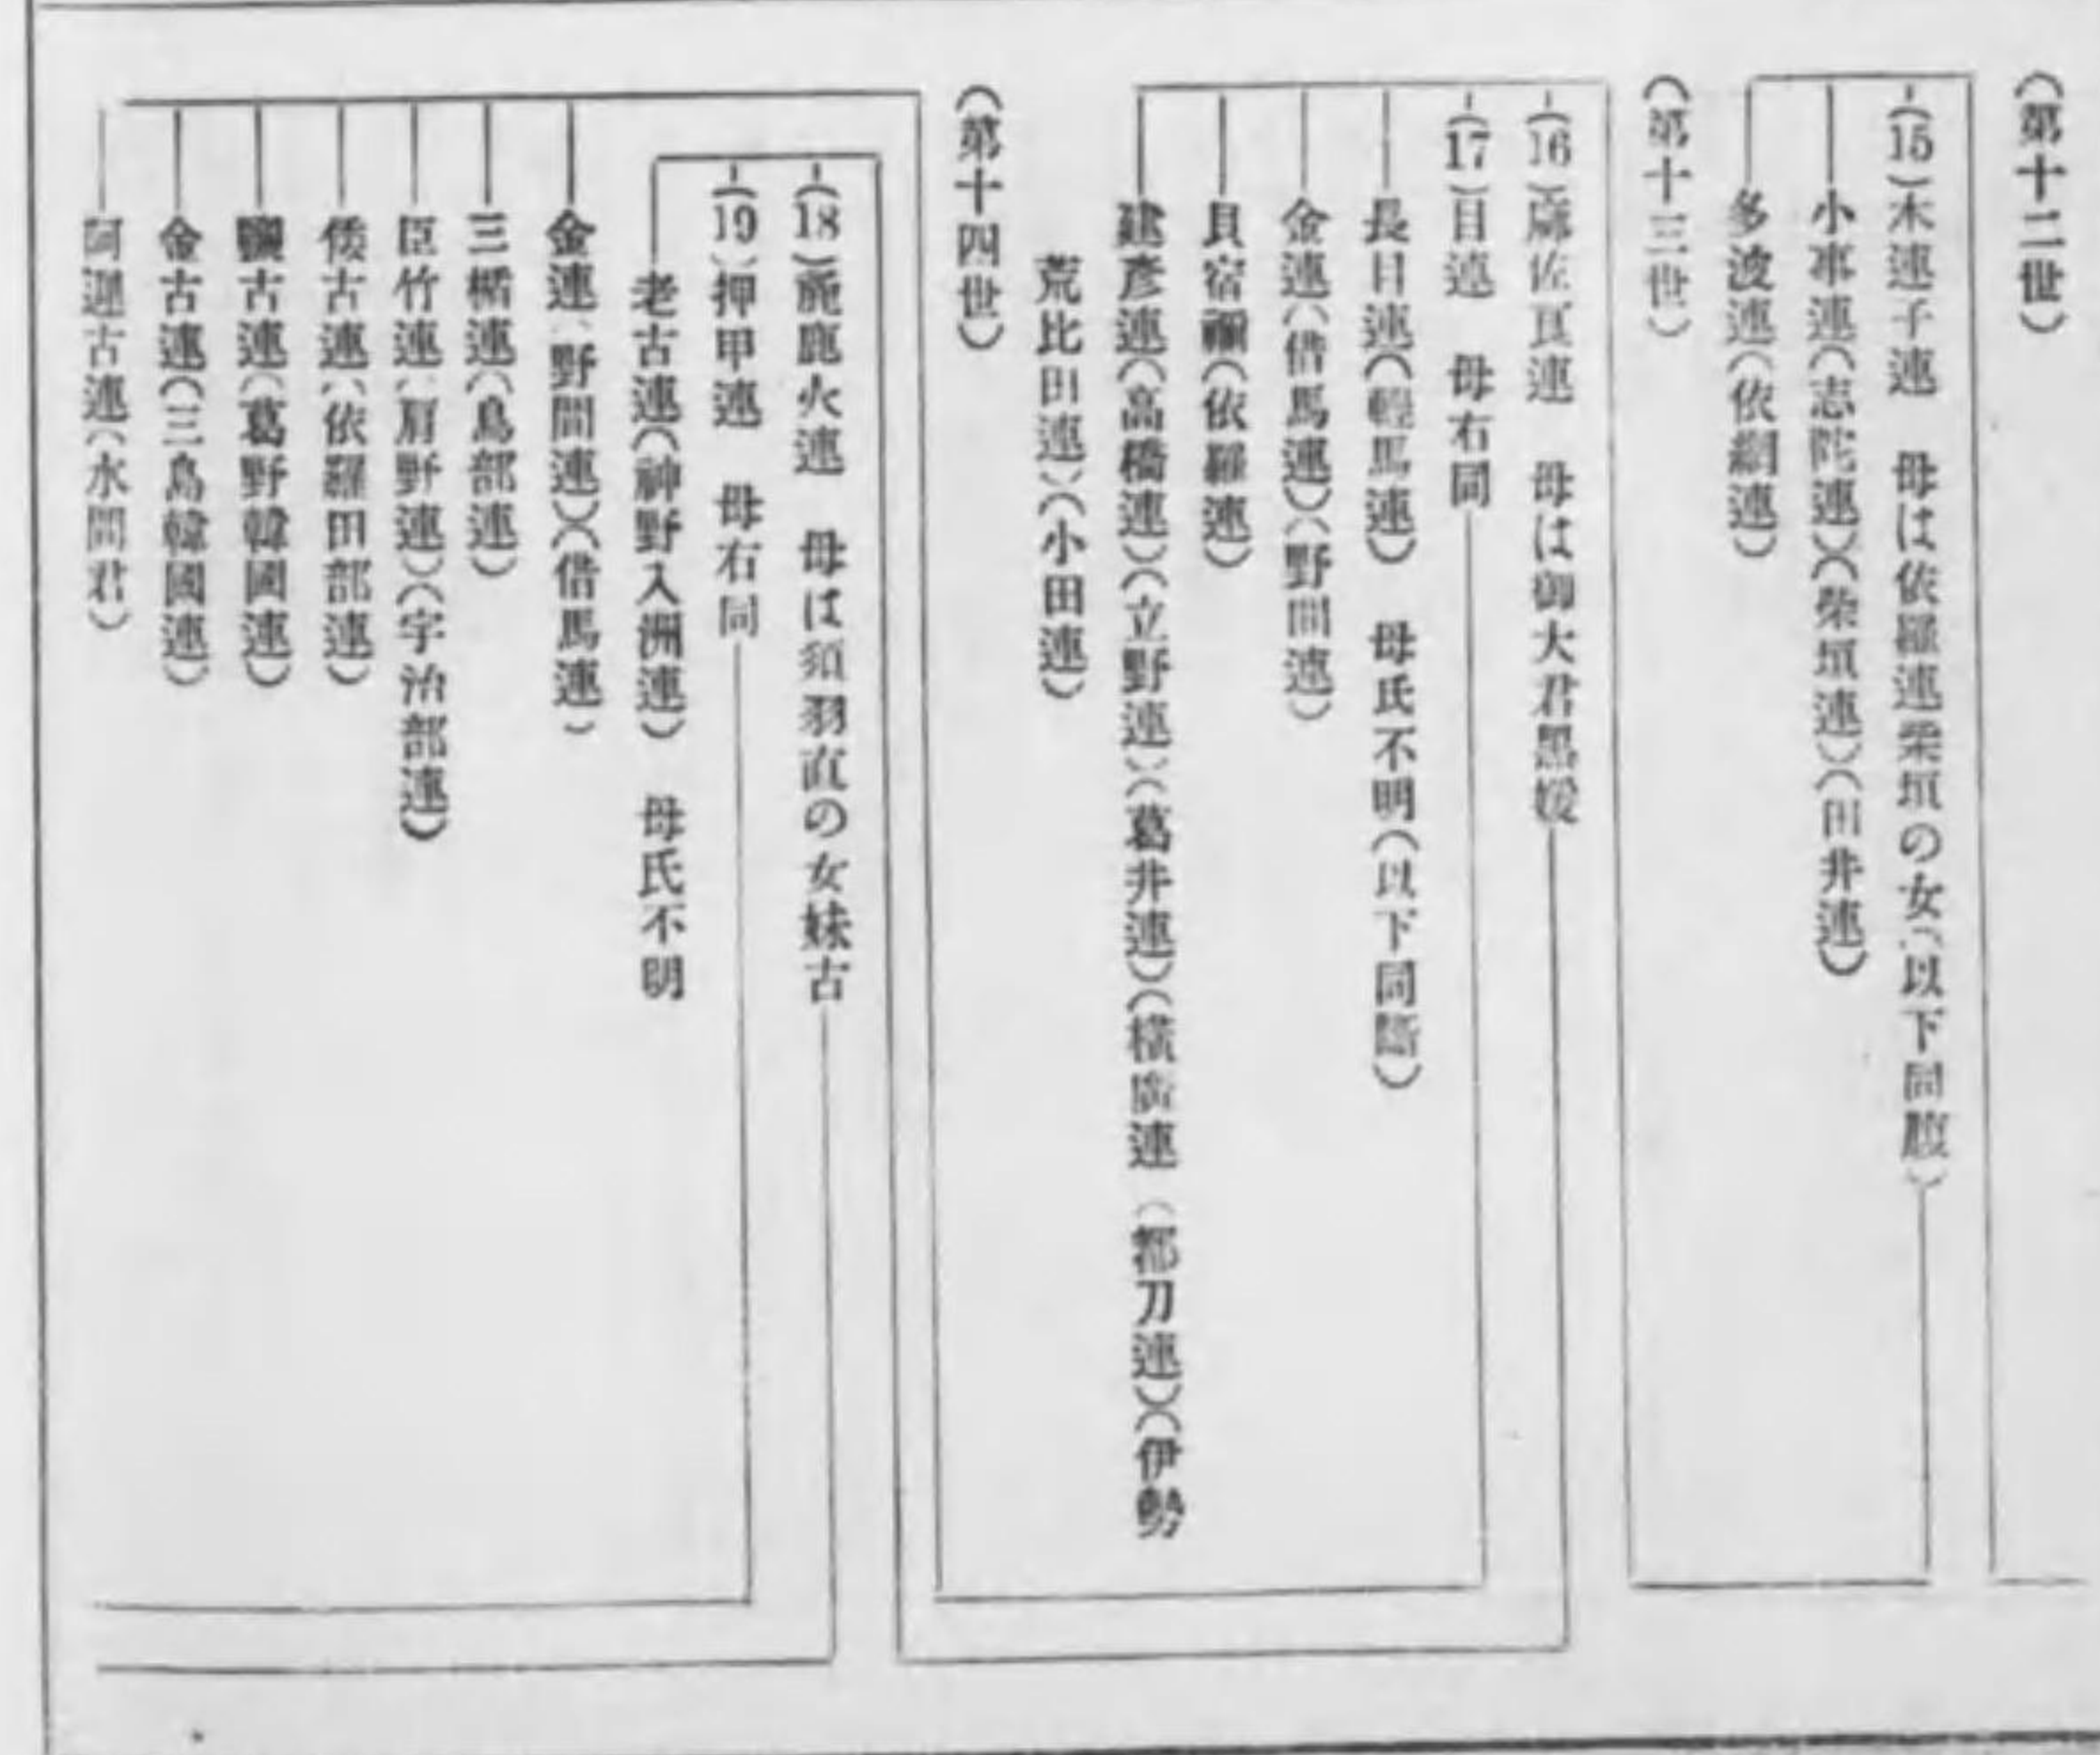 (第十二世)
(15)木連子連　母は依羅連柴垣の女(以下同腹)
小事連(志陀連)(柴垣連)(田井連)
多波連(依網連)
(第十三世)
(16)麻佐良連　母は御大君黒媛
(17)目連　母右同
長目連(輕馬連)　母氏不明(以下同斷)
金連(借馬連)(野間連)
貝宿禰(依羅連)
建彦連(高橋連)(立野連)(葛井連)(横廣連　(都刀連)(伊勢
荒比田連)(小田連)
(第十四世)
(18)麁鹿火連　母は須羽直の女妹古
(19)押甲連　母右同
老古連(神野入洲連)　母氏不明
金連(野間連)(借馬連)
三楯連(鳥部連)
臣竹連(肩野連)(宇治部連)
倭古連(依羅田部連)
鹽古連(葛野韓國連)
金古連(三島韓國連)
阿遲古連(水間君)